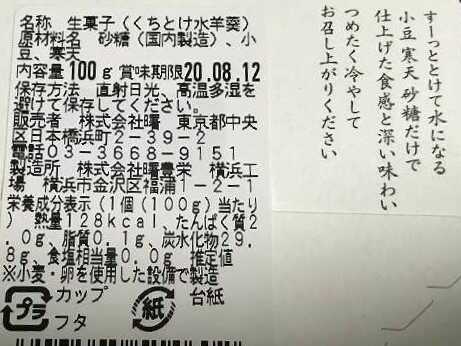 名称　生菓子（くちとけ水羊羹）
原材料名　砂糖（国内製造）、小
豆、寒天
内容量 100ｇ 賞味期限20.08.12
保存方法　直射日光、高温多湿を
避けて保存してください。
販売者　株式会社曙　東京都中央
区日本橋浜町２-３９-２
電話０３-３６６８-９１５１
製造所　株式会社曙豊栄　横浜工
場　横浜市金沢区福浦１-２-１
栄養成分表示（１個（100ｇ）当たり
）　熱量１２８kcal、たんぱく質２
.０g、脂質０.１g、炭水化物２９.
８g、食塩相当量０.０g　推定値
※小麦・卵を使用した設備で製造
プラ カップ
フタ
紙 台紙
すーっととけて水になる
小豆 寒天 砂糖だけで
仕上げた食感と深い味わい
つめたく冷やして
お召し上がりください